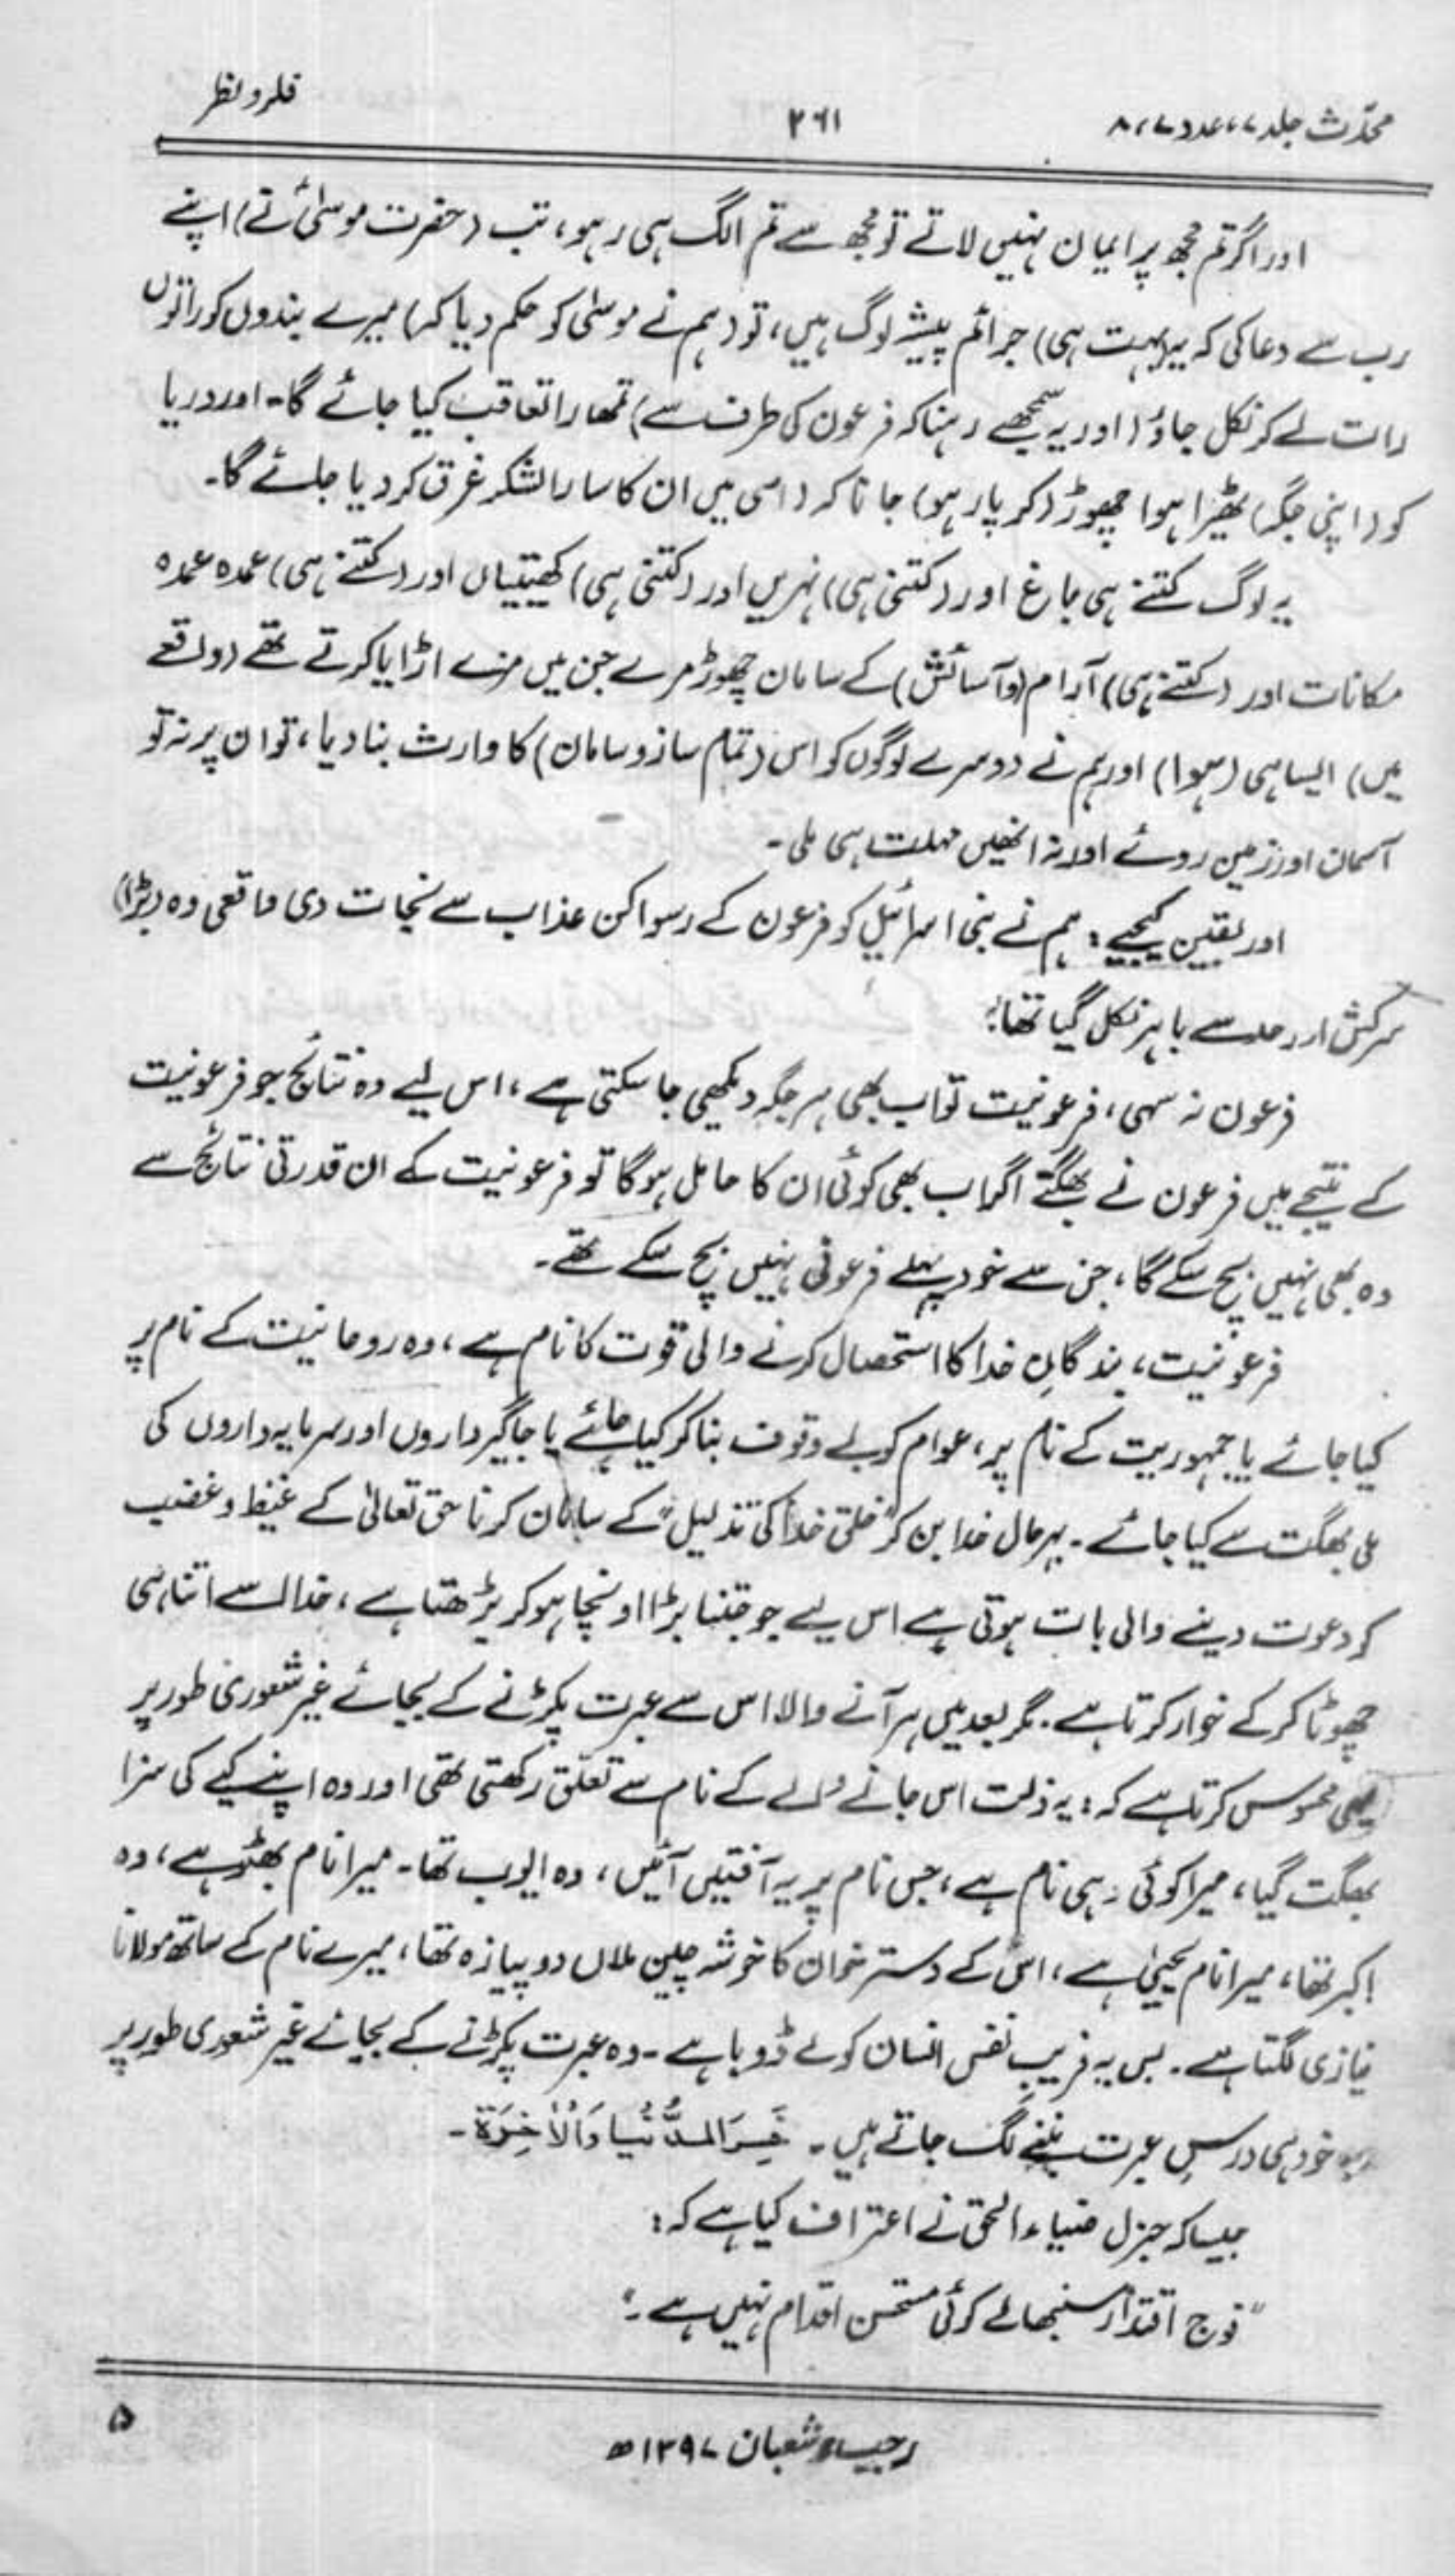 محدّث جلد ۷، عدد ۷، ۸
۲۶۱
فکر و نظر
اور اگر تم مجھ پر ایمان نہیں لاتے تو مجھ سے تم الگ ہی رہو، تب (حضرت موسیٰؑ نے) اپنے
رب سے دعا کی کہ یہ (بہت ہی) جرائم پیشہ لوگ ہیں، تو (ہم نے موسیٰ کو حکم دیا کہ) میرے بندوں کو راتوں
رات لے کر نکل جاؤ (اور یہ سمجھے رہنا کہ فرعون کی طرف سے) تمھارا تعاقب کیا جائے گا۔ اور دریا
کو (اپنی جگہ) ٹھیرا ہوا چھوڑ (کر پار ہو) جانا کہ (اسی میں ان کا سارا لشکر غرق کر دیا جائے گا۔
یہ لوگ کتنے ہی باغ اور (کتنی ہی) نہریں اور (کتنی ہی) کھیتیاں اور (کتنے ہی) عمدہ عمدہ
مکانات اور (کتنے ہی) آرام (و آسائش) کے سامان چھوڑ مرے جن میں مزے اڑایا کرتے تھے (واقعے
میں) ایسا ہی (ہوا) اور ہم نے دوسرے لوگوں کو اس (تمام ساز و سامان) کا وارث بنا دیا، تو ان پر نہ تو
آسمان اور زمین روئے اور نہ انھیں مہلت ہی ملی۔
اور یقین کیجیے: ہم نے بنی اسرائیل کو فرعون کے رسوا کن عذاب سے نجات دی واقعی وہ (بڑا)
سرکش اور حد سے باہر نکل گیا تھا۔"
فرعون نہ سہی، فرعونیت تو اب بھی ہر جگہ دیکھی جا سکتی ہے، اس لیے وہ نتائج جو فرعونیت
کے نتیجے میں فرعون نے بھگتے اگر اب بھی کوئی ان کا حامل ہوگا تو فرعونیت کے ان قدرتی نتائج سے
وہ بھی نہیں بچ سکے گا، جن سے خود پہلے فرعونی نہیں بچ سکے تھے۔
فرعونیت، بندگانِ خدا کا استحصال کرنے والی قوت کا نام ہے، وہ روحانیت کے نام پر
کیا جائے یا جمہوریت کے نام پر، عوام کو بے وقوف بنا کر کیا جائے یا جاگیرداروں اور سرمایہ داروں کی
ملی بھگت سے کیا جائے۔ بہرحال خدا بن کر "خلقِ خدا کی تذلیل" کے سامان کرنا حق تعالیٰ کے غیظ و غضب
کو دعوت دینے والی بات ہوتی ہے اس لیے جو جتنا بڑا اونچا ہو کر بڑھتا ہے، خدا اسے اتنا ہی
چھوٹا کر کے خوار کرتا ہے۔ مگر بعد میں ہر آنے والا اس سے عبرت پکڑنے کے بجائے غیر شعوری طور پر
یہی محسوس کرتا ہے کہ: یہ ذلت اس جانے والے کے نام سے تعلق رکھتی تھی اور وہ اپنے کیے کی سزا
بھگت گیا، میرا کوئی وہی نام ہے، جس نام پر یہ آفتیں آئیں، وہ ایوب تھا۔ میرا نام بھٹو ہے، وہ
اکبر تھا، میرا نام یحییٰ ہے، اس کے دستر خوان کا خوشہ چین ملاں دو پیازہ تھا، میرے نام کے ساتھ مولانا
نیازی لگتا ہے۔ بس یہ فریبِ نفس انسان کو لے ڈوبا ہے۔ وہ عبرت پکڑنے کے بجائے غیر شعوری طور پر
خود ہی درسِ عبرت بننے لگ جاتے ہیں۔ خَسِرَ الدُّنْیَا وَالْاٰخِرَةَ۔
جیسا کہ جنرل ضیاء الحق نے اعتراف کیا ہے کہ:
"فوج اقتدار سنبھالے کوئی مستحسن اقدام نہیں ہے۔"
رجب، شعبان ۱۳۹۷ھ
۵